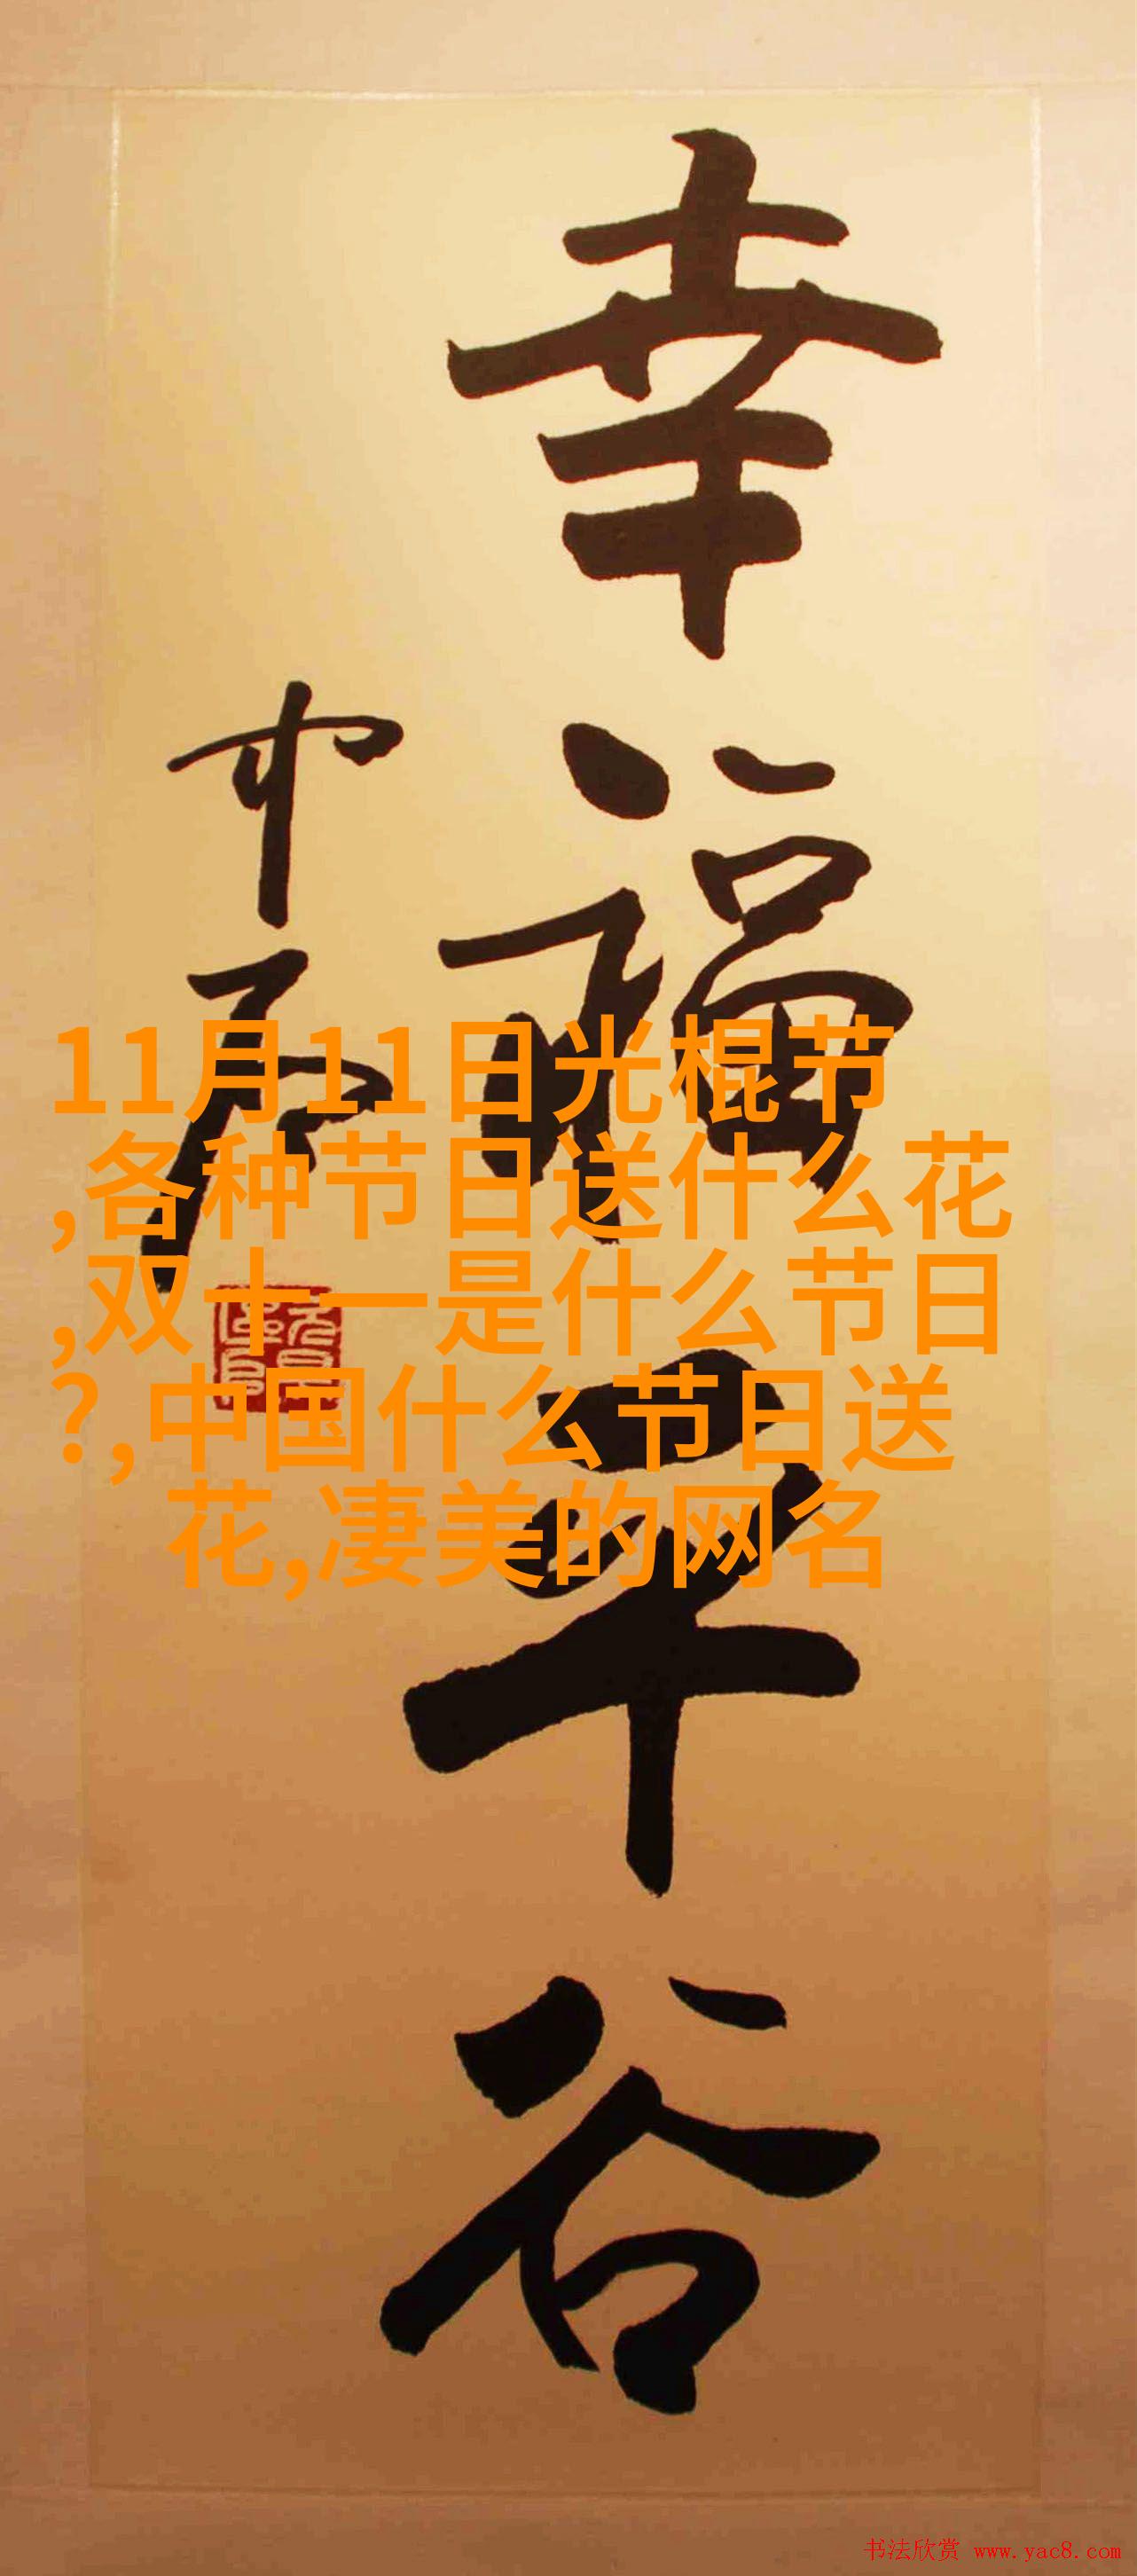 幸福平谷
中石
11月11日光棍节
,各种节日送什么花
,双十一是什么节日
?,中国什么节日送
花,凄美的网名
书法欣赏 www.yac8.com